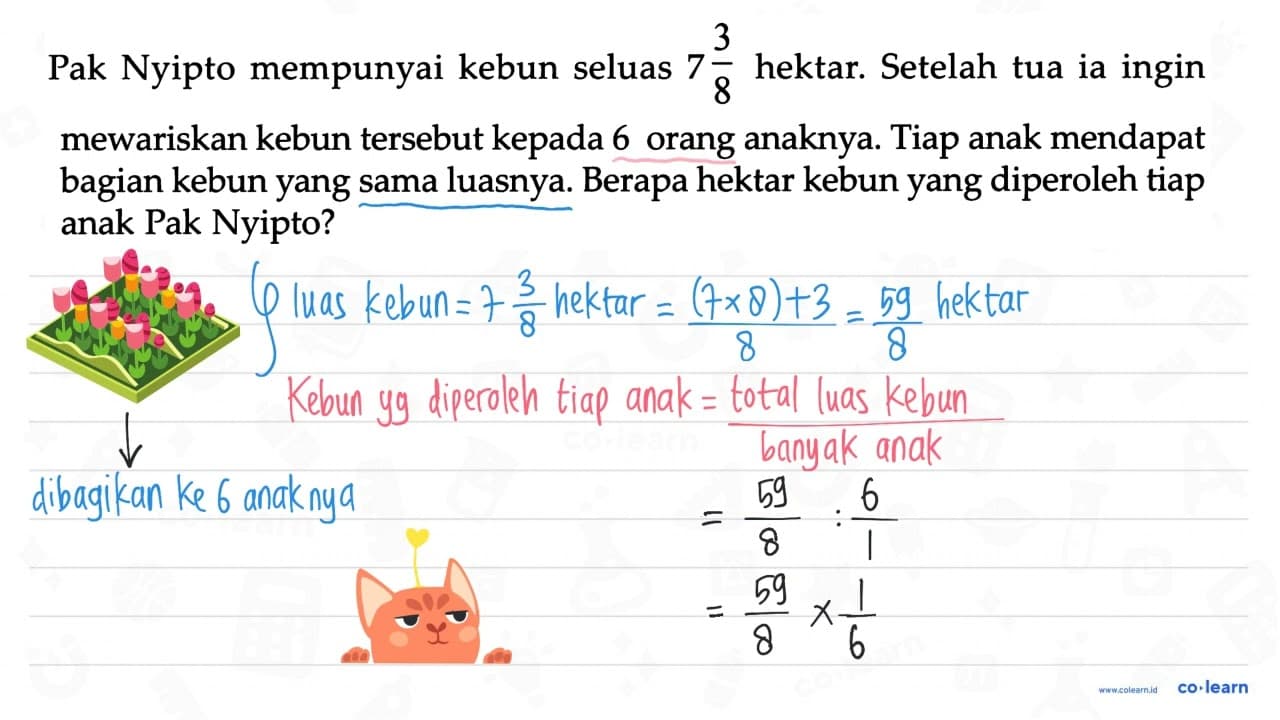 Pak Nyipto mempunyai kebun seluas 7 3/8 hektar. Setelah tua ia ingin
mewariskan kebun tersebut kepada 6 orang anaknya. Tiap anak mendapat
bagian kebun yang sama luasnya. Berapa hektar kebun yang diperoleh tiap
anak Pak Nyipto?
luas kebun = 7 3/8 hektar = (7 × 8) + 3 / 8 = 59/8 hektar
Kebun yg diperoleh tiap anak = total luas kebun / banyak anak
dibagikan ke 6 anaknya
= 59/8 : 6/1
= 59/8 × 1/6
www.colearn.id co·learn